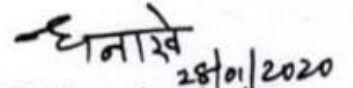 धनाखे
28/01/2020